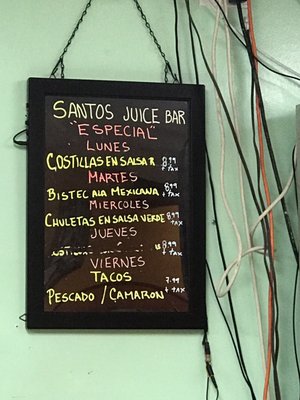 SANTOS JUICE BAR
"ESPECIAL"
LUNES
COSTILLAS EN SALSA R 8.99 + TAX
MARTES
BISTEC ALA MEXICANA 8.99 + TAX
MIERCOLES
CHULETAS EN SALSA VERDE 8.99 + TAX
JUEVES
8.99 + TAX
VIERNES
TACOS
PESCADO / CAMARON 7.99 + TAX